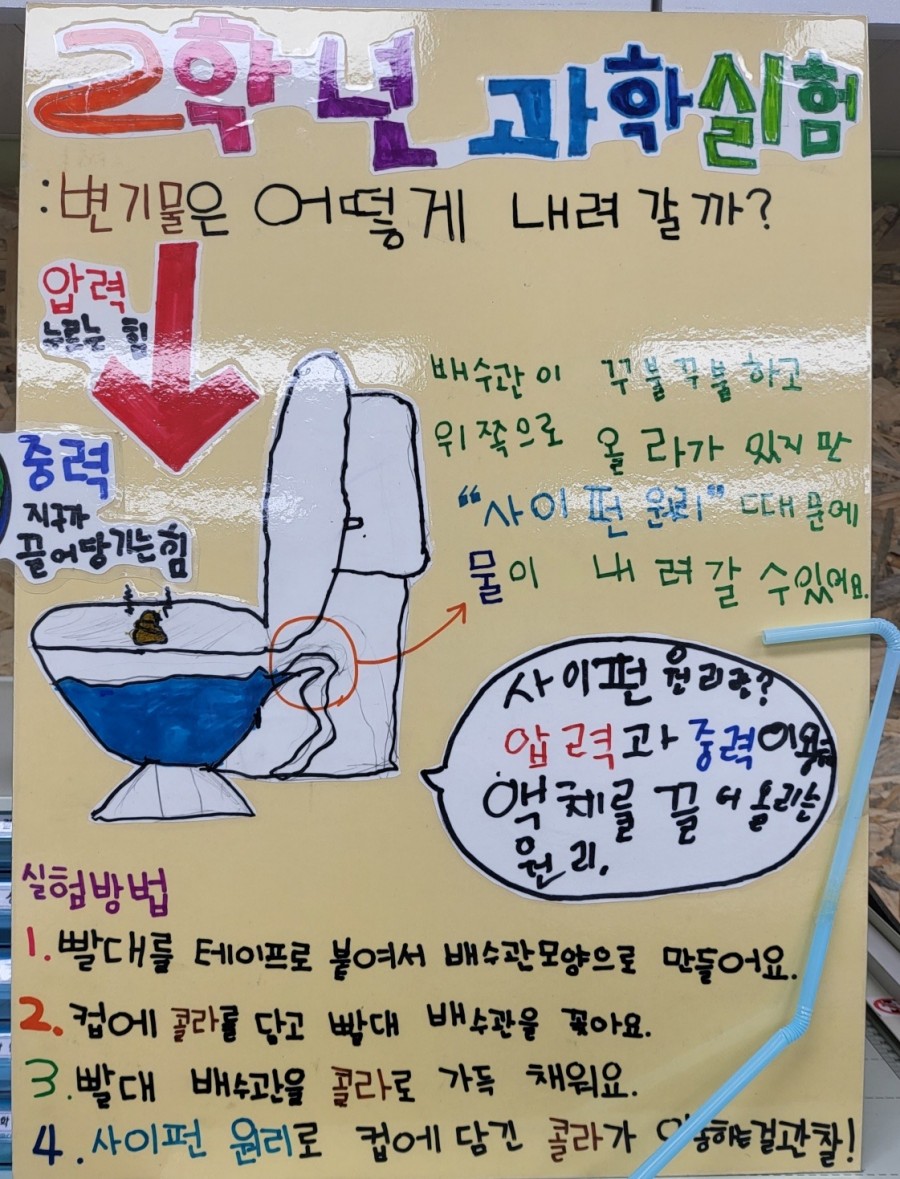 2학년 과학실험
:변기물은 어떻게 내려갈까?
압력
누르는 힘
중력
지구가
끌어당기는 힘
배수관이 꾸불꾸불하고
위쪽으로 올라가 있지만
"사이펀 원리" 때문에
물이 내려갈 수있어요.
사이펀 원리란?
압력과 중력이용
액체를 끌어 올리는
원리.
실험방법
1. 빨대를 테이프로 붙여서 배수관모양으로 만들어요.
2. 컵에 콜라를 담고 빨대 배수관을 꽂아요.
3. 빨대 배수관을 콜라로 가득 채워요.
4. 사이펀 원리로 컵에 담긴 콜라가 이동하는걸관찰!